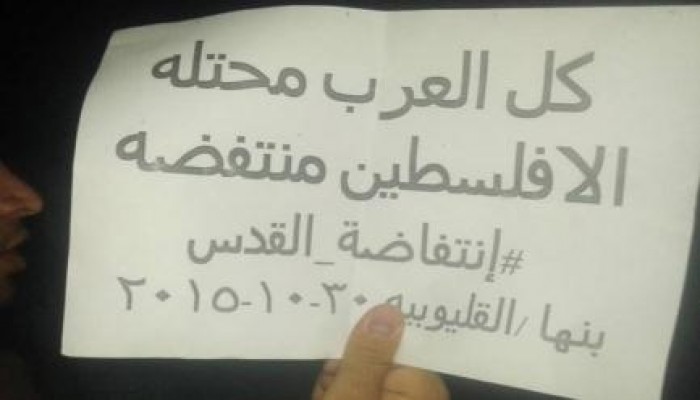 كل العرب محتله
الا فلسطين منتفضه
#إنتفاضة_القدس
بنها /القليوبيه ٣٠-١٠-٢٠١٥